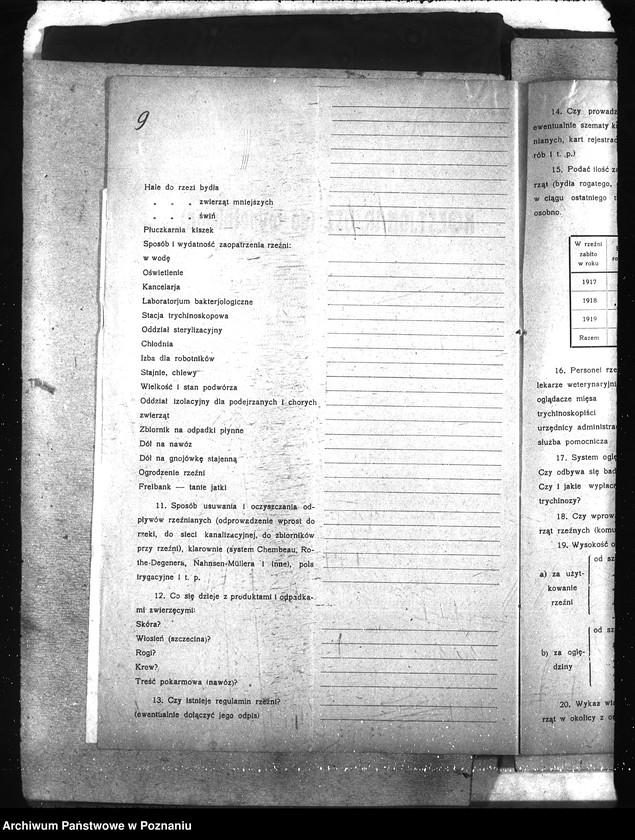 9
Hale do rzezi bydła
„ „ „ zwierząt mniejszych
„ „ „ świń
Płuczkarnia kiszek
Sposób i wydatność zaopatrzenia rzeźni:
w wodę
Oświetlenie
Kancelarja
Laboratorjum bakterjologiczne
Stacja trychinoskopowa
Oddział sterylizacyjny
Chłodnia
Izba dla robotników
Stajnie, chlewy
Wielkość i stan podwórza
Oddział izolacyjny dla podejrzanych i chorych
zwierząt
Zbiornik na odpadki płynne
Dół na nawóz
Dół na gnojówkę stajenną
Ogrodzenie rzeźni
Freibank — tanie jatki
11. Sposób usuwania i oczyszczania od-
pływów rzeźnianych (odprowadzenie wprost do
rzeki, do sieci kanalizacyjnej, do zbiorników
przy rzeźni), klarownie (system Chembeau, Ro-
the-Degenera, Nahnsen-Müllera i inne), pola
irygacyjne i t. p.
12. Co się dzieje z produktami i odpadka-
mi zwierzęcymi:
Skóra?
Włosień (szczecina)?
Rogi?
Krew?
Treść pokarmowa (nawóz)?
13. Czy istnieje regulamin rzeźni?
(ewentualnie dołączyć jego odpis)
14. Czy prowadz
ewentualnie szematy k
nianych, kart rejestrac
rób i t. p.)
15. Podać ilość z
rząt (bydła rogatego,
w ciągu ostatniego t
osobno.
W rzeźni
zabito
w roku
1917
1918
1919
Razem
16. Personel rze
lekarze weterynaryjni
oglądacze mięsa
trychinoskopiści
urzędnicy administra
służba pomocnicza
17. System oglę
Czy odbywa się bad
Czy i jakie wypłac
trychinozy?
18. Czy wprow
rząt rzeźnych (komu
19. Wysokość o
od sz
a) za użyt-
kowanie
rzeźni
od sz
b) za oglę-
dziny
20. Wykaz wie
rząt w okolicy z o
Archiwum Państwowe w Poznaniu